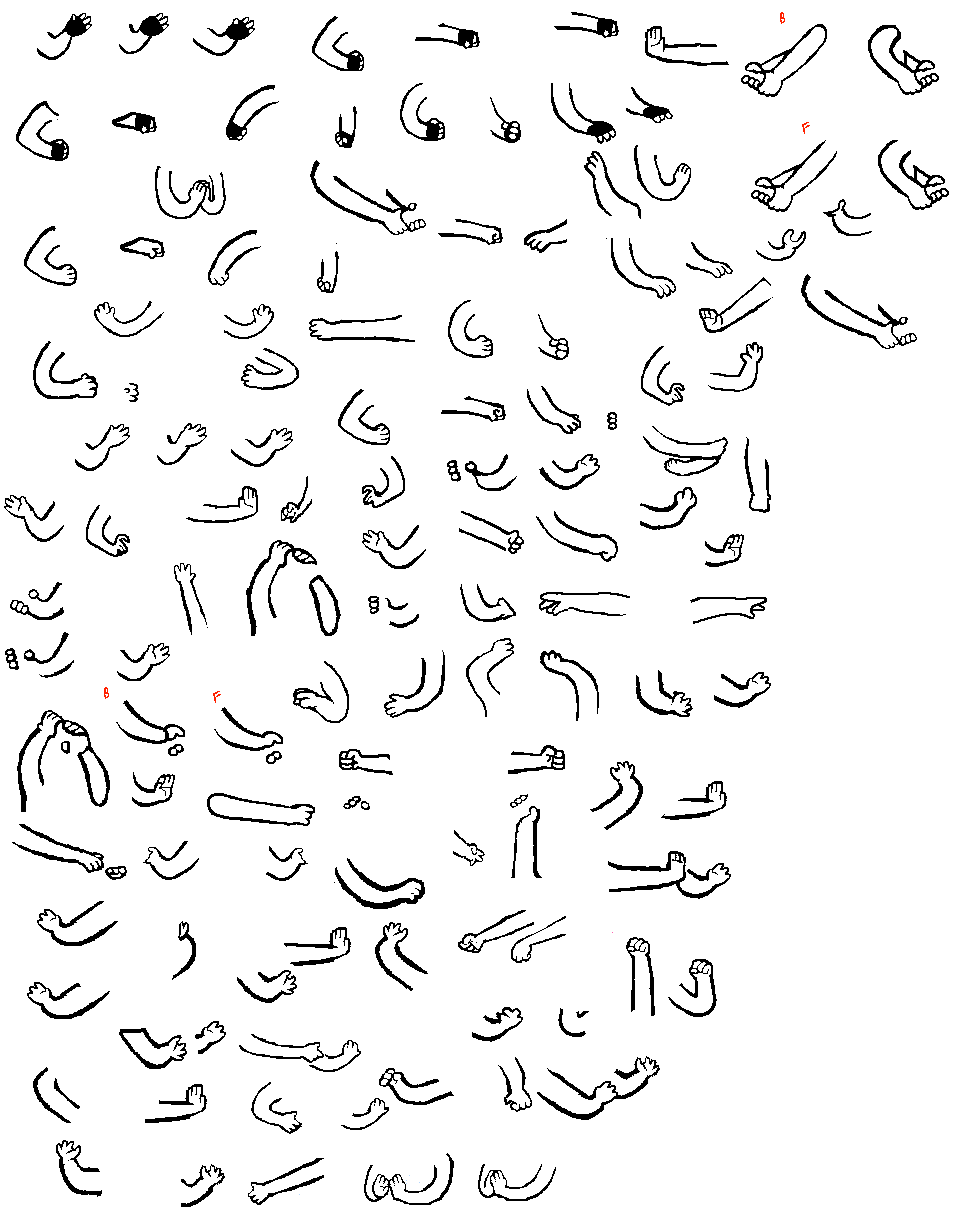 B
F
B
F